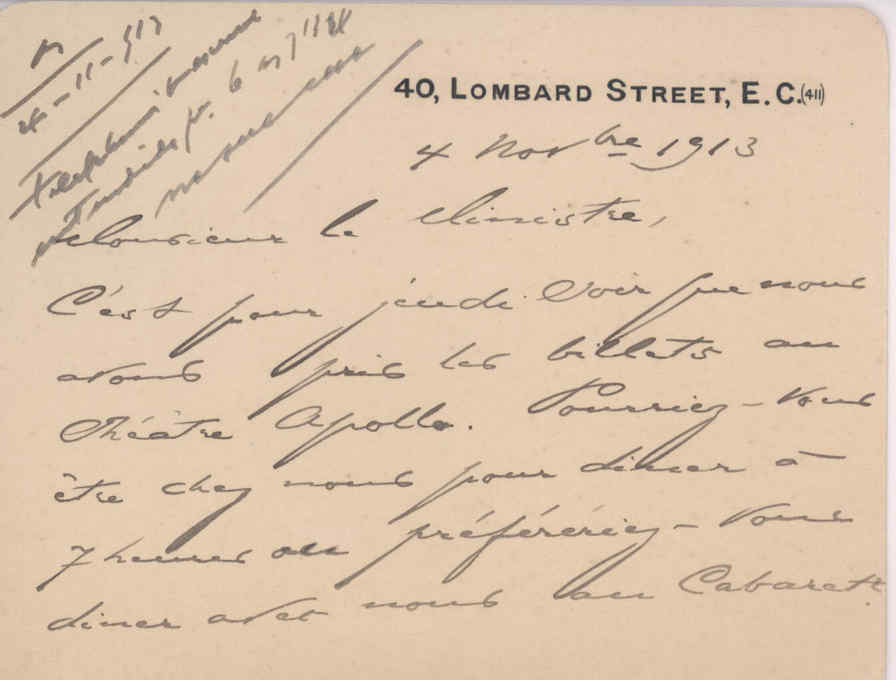 R
4-11-913
6 11 7 1/4
40, LOMBARD STREET, E.C.(411)
4 Novbre 1913
Monsieur le Ministre,
C'est pour jeudi soir que nous
avons pris les billets au
Théâtre Apollo. Pourriez-vous
être chez nous pour diner à
7 heures ou préféreriez-vous
diner avec nous au Cabaret?